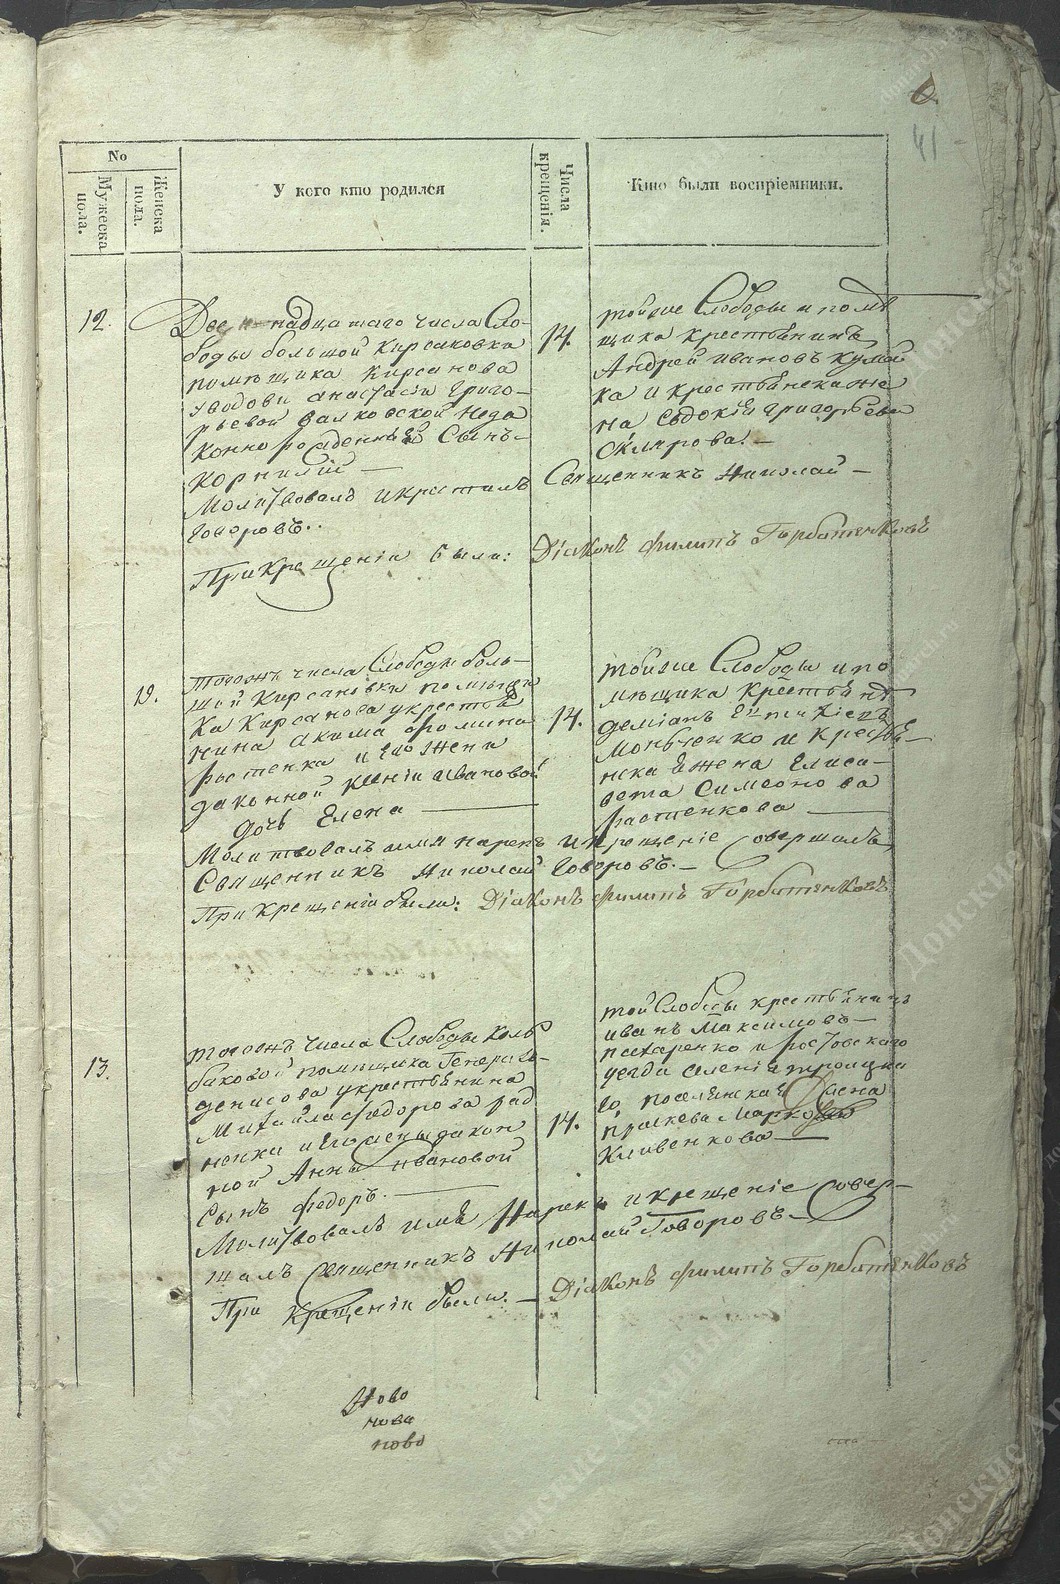 6.
41
№
Мужеска пола.
Женска пола.
У кого кто родился
Числа крещенія.
Кто были воспріемники.
12.
надцатаго числа Сло-
боды большой Кирсановки
помѣщика Кирсанова
увдови анастасіи Григо-
рьевой Волковской неза
коннорожденный Сынъ-
Корнилій —
Молитвовалъ икрестилъ Священникъ Николай —
Говоровъ..
При Крещеніи были: Діаконъ филипъ Горбатенковъ
14.
тойже Слободы и помѣ
щика крестьянинъ
Андрей ивановъ
ка и крестьянска же
на Евдокія григорьева
Склярова. —
19.
тогожъ числа Слободы боль-
шой Кирсановки помѣщи
ка Кирсанова укрестья
нина Акима фомина
растенка и Его жены
законной Ксеніи ивановой
дочь Елена —
Молитвовалъ имя нарекъ и крещеніе Совершалъ
Священникъ Николай Говоровъ. —
При Крещеніи были: Діаконъ филипъ Горбатенковъ
14.
тойже Слободы и по
мѣщика крестьянинъ
деміанъ
и крестья-
нска жена Елиса-
вета Симеонова
растенкова —
13.
тогожъ числа Слободы
баковой помѣщика Генерала
денисова укрестьянина
Михайла федорова рад
ненка и Его жены закон
ной Анны ивановой
Сынъ федоръ. —
Молитвовалъ имя Нарекъ и крещеніе Совер-
шалъ Священникъ Николай Говоровъ —
При Крещеніи были. — Діаконъ филипъ Горбатенковъ
14.
той Слободы крестьянинъ
иванъ Максимовъ —
и ростовскаго
уезда селенія троицка
го поселянская жена
праскева Маркова
Кливенкова —
Ново
нова
ново